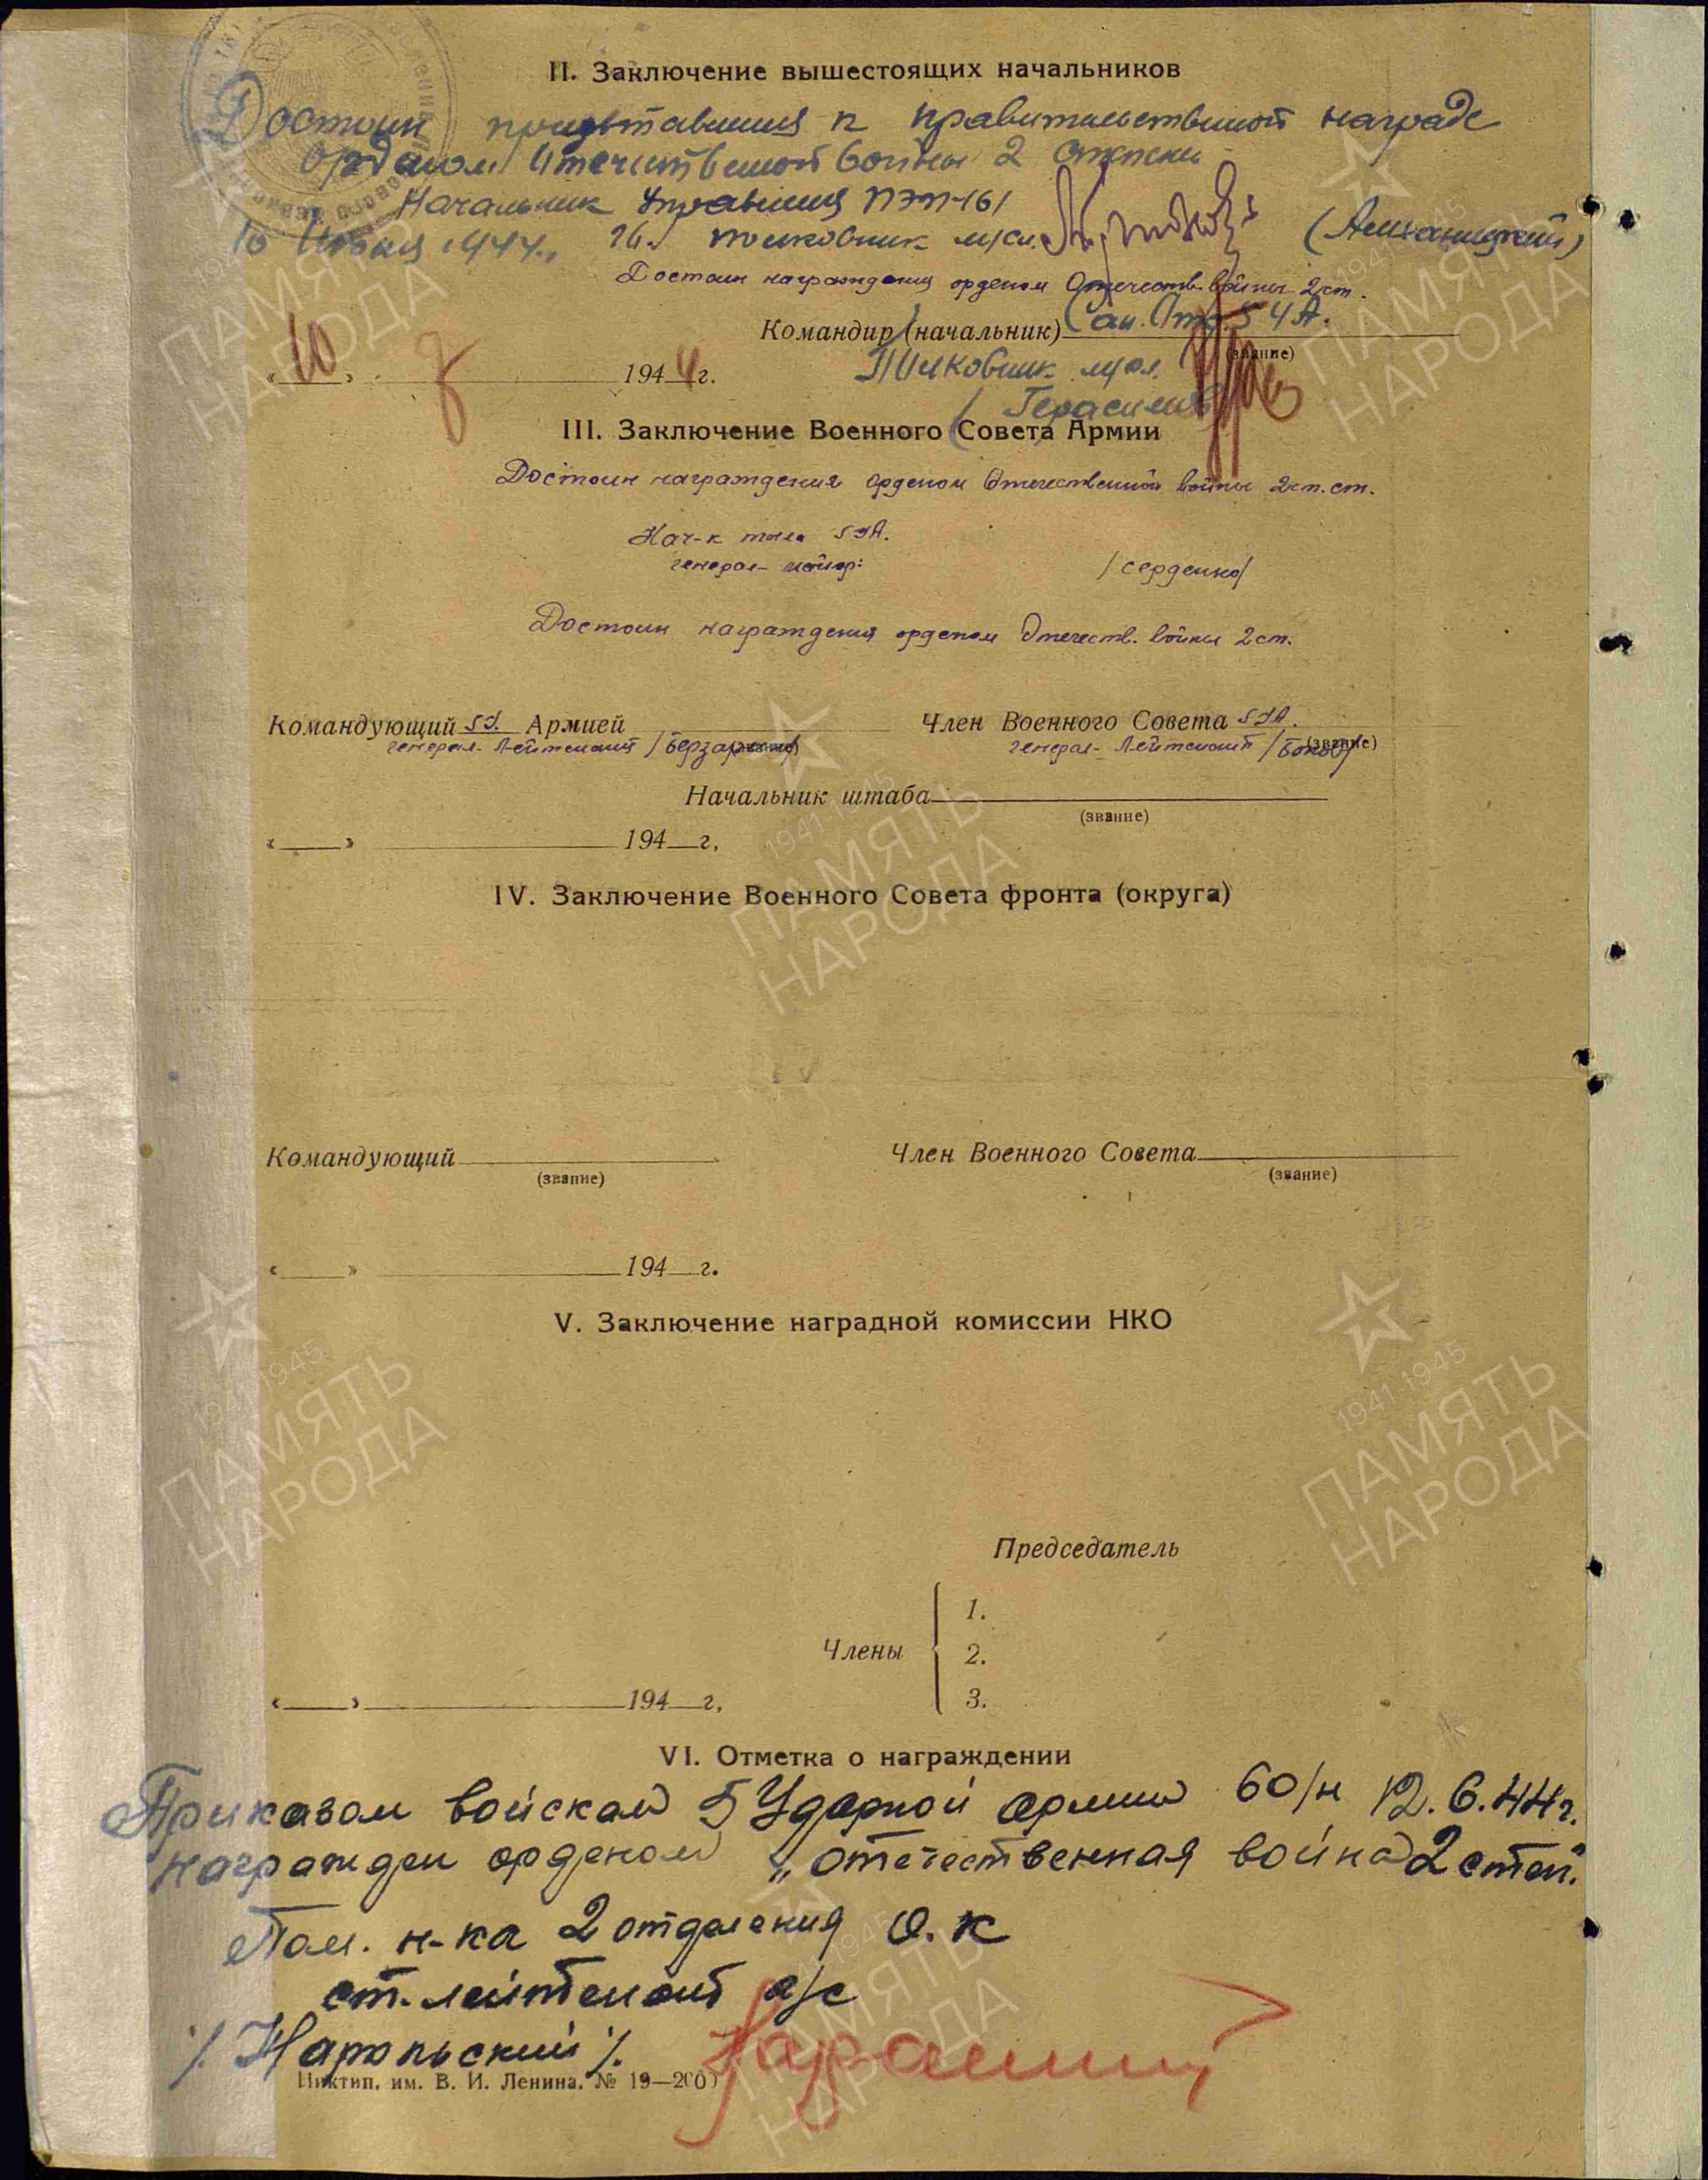 II. Заключение вышестоящих начальников
Достоин представления к правительственной награде
орденом Отечественной войны 2 степени
Начальник Управления ПЭП-161
10 Июня 1944г. п/полковник м/сл.
Достоин награждения орденом Отечеств. войны 2 ст.
Командир (начальник) Сан. Отд. 5 У А.
(звание)
«10» 194 4 г. Полковник м/сл.
/ Герасимов
III. Заключение Военного Совета Армии
Достоин награждения орденом Отечественной войны 2й ст.
Нач-к тыла 5 УА.
генерал-майор: /Серденко/
Достоин награждения орденом Отечеств. войны 2 ст.
Командующий 5 У. Армией Член Военного Совета 5 УА.
генерал-лейтенант /Берзарин/ генерал-лейтенант /Боков/
(звание) (звание)
Начальник штаба
(звание)
« » 194 г.
IV. Заключение Военного Совета фронта (округа)
Командующий Член Военного Совета
(звание) (звание)
« » 194 г.
V. Заключение наградной комиссии НКО
Председатель
1.
Члены 2.
« » 194 г. 3.
VI. Отметка о награждении
Приказом войскам 5 Ударной армии 60/н 12.6.44г.
награжден орденом „Отечественная война 2 степ."
Пом. н-ка 2 отделения О.К
ст. лейтенант а/с
/. Наропольский /.
Инктип. им. В. И. Ленина. № 19—200
1941-1945
ПАМЯТЬ
НАРОДА